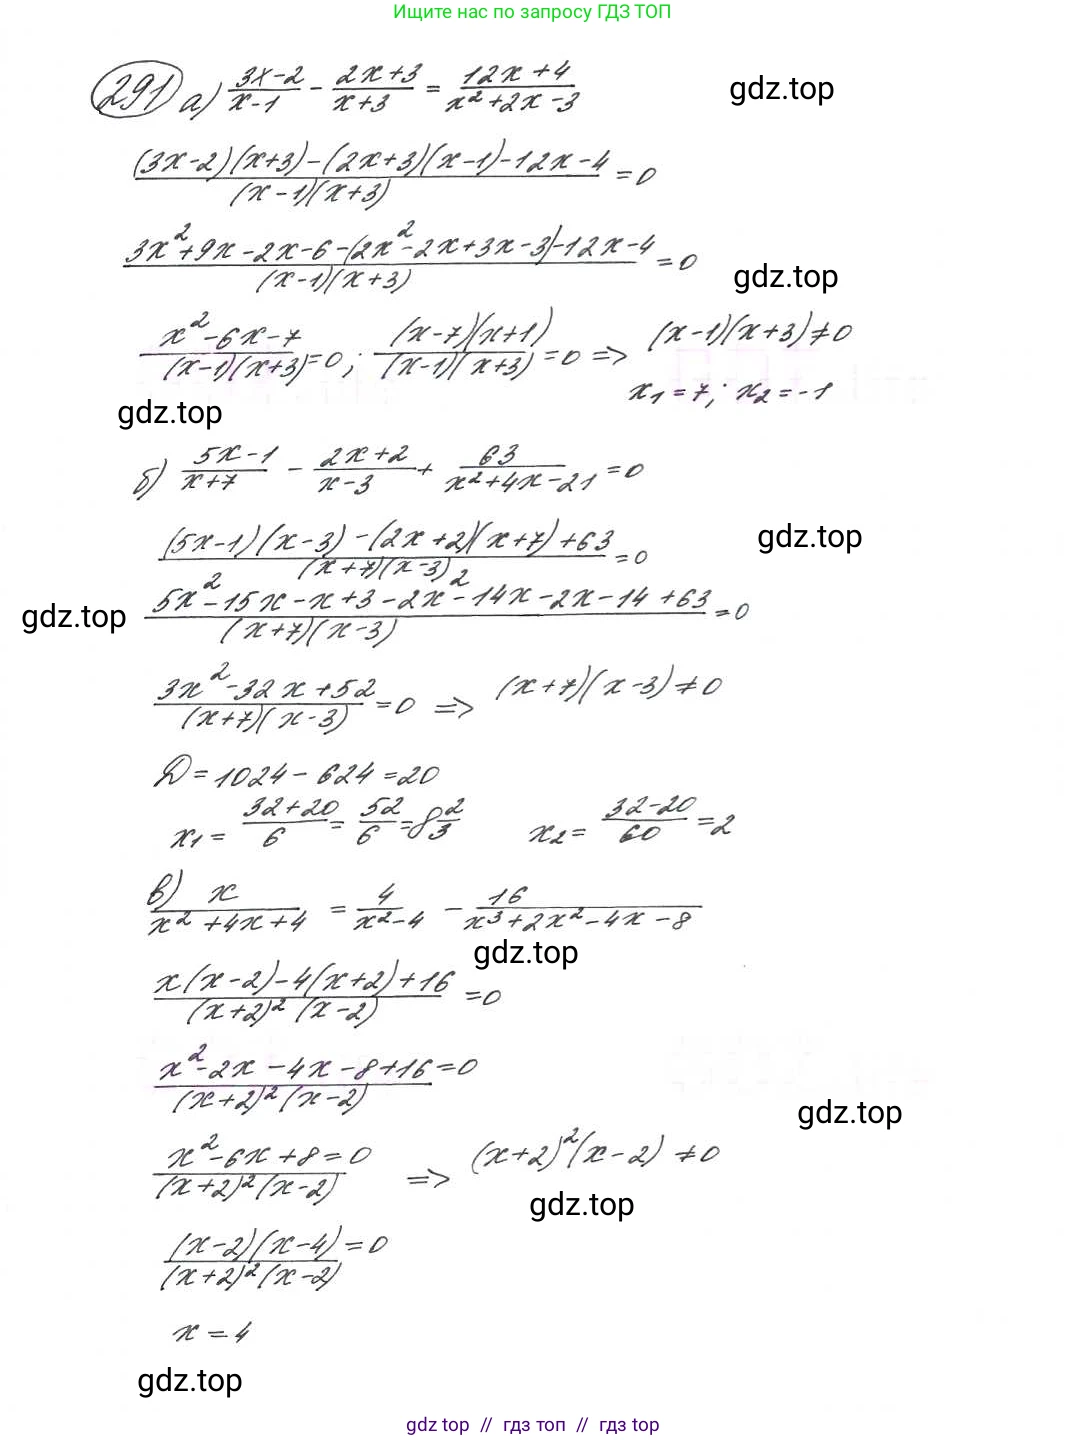 Ищите нас по запросу ГДЗ ТОП
291 а) (3x-2)/(x-1) - (2x+3)/(x+3) = (12x+4)/(x²+2x-3) gdz.top
((3x-2)(x+3)-(2x+3)(x-1)-12x-4)/((x-1)(x+3)) = 0
(3x²+9x-2x-6-(2x²-2x+3x-3)-12x-4)/((x-1)(x+3)) = 0
gdz.top
(x²-6x-7)/((x-1)(x+3)) = 0; ((x-7)(x+1))/((x-1)(x+3)) = 0 => (x-1)(x+3)≠0
x₁=7; x₂=-1
gdz.top
б) (5x-1)/(x+7) - (2x+2)/(x-3) + 63/(x²+4x-21) = 0
((5x-1)(x-3)-(2x+2)(x+7)+63)/((x+7)(x-3)) = 0 gdz.top
gdz.top (5x²-15x-x+3-2x²-14x-2x-14+63)/((x+7)(x-3)) = 0
(3x²-32x+52)/((x+7)(x-3)) = 0 => (x+7)(x-3)≠0
D=1024-624=20
x₁ = (32+20)/6 = 52/6 = 8 2/3 x₂ = (32-20)/60 = 2
в) x/(x²+4x+4) = 4/(x²-4) - 16/(x³+2x²-4x-8)
gdz.top
(x(x-2)-4(x+2)+16)/((x+2)²(x-2)) = 0
(x²-2x-4x-8+16)/((x+2)²(x-2)) = 0
gdz.top
(x²-6x+8)/((x+2)²(x-2)) = 0 => (x+2)²(x-2)≠0
gdz.top
((x-2)(x-4))/((x+2)²(x-2)) = 0
x = 4
gdz.top
gdz top // гдз топ // gdz top